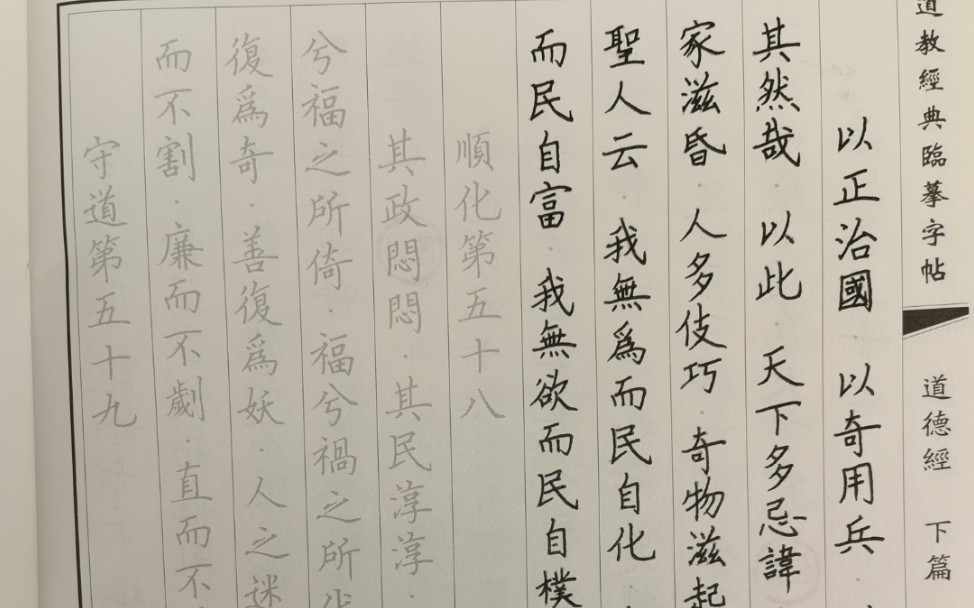 道教經典臨摹字帖
道德經 下篇
以正治國·以奇用兵·
其然哉·以此·天下多忌諱
家滋昏·人多伎巧·奇物滋起
聖人云·我無爲而民自化
而民自富·我無欲而民自樸
順化第五十八
其政悶悶·其民淳淳·
兮福之所倚·福兮禍之所
復爲奇·善復爲妖·人之迷
而不割·廉而不劌·直而不
守道第五十九